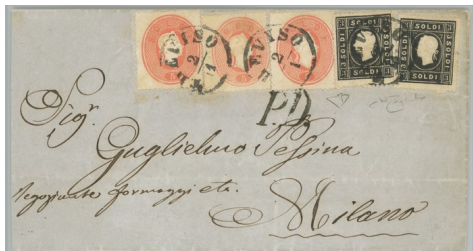 TREVISO
2
1
TREVISO
2
1
3 SOLDI 3
3 SOLDI 3
P.D.
Sigr.
Guglielmo Pessina
negoziante formaggi etc.
Milano